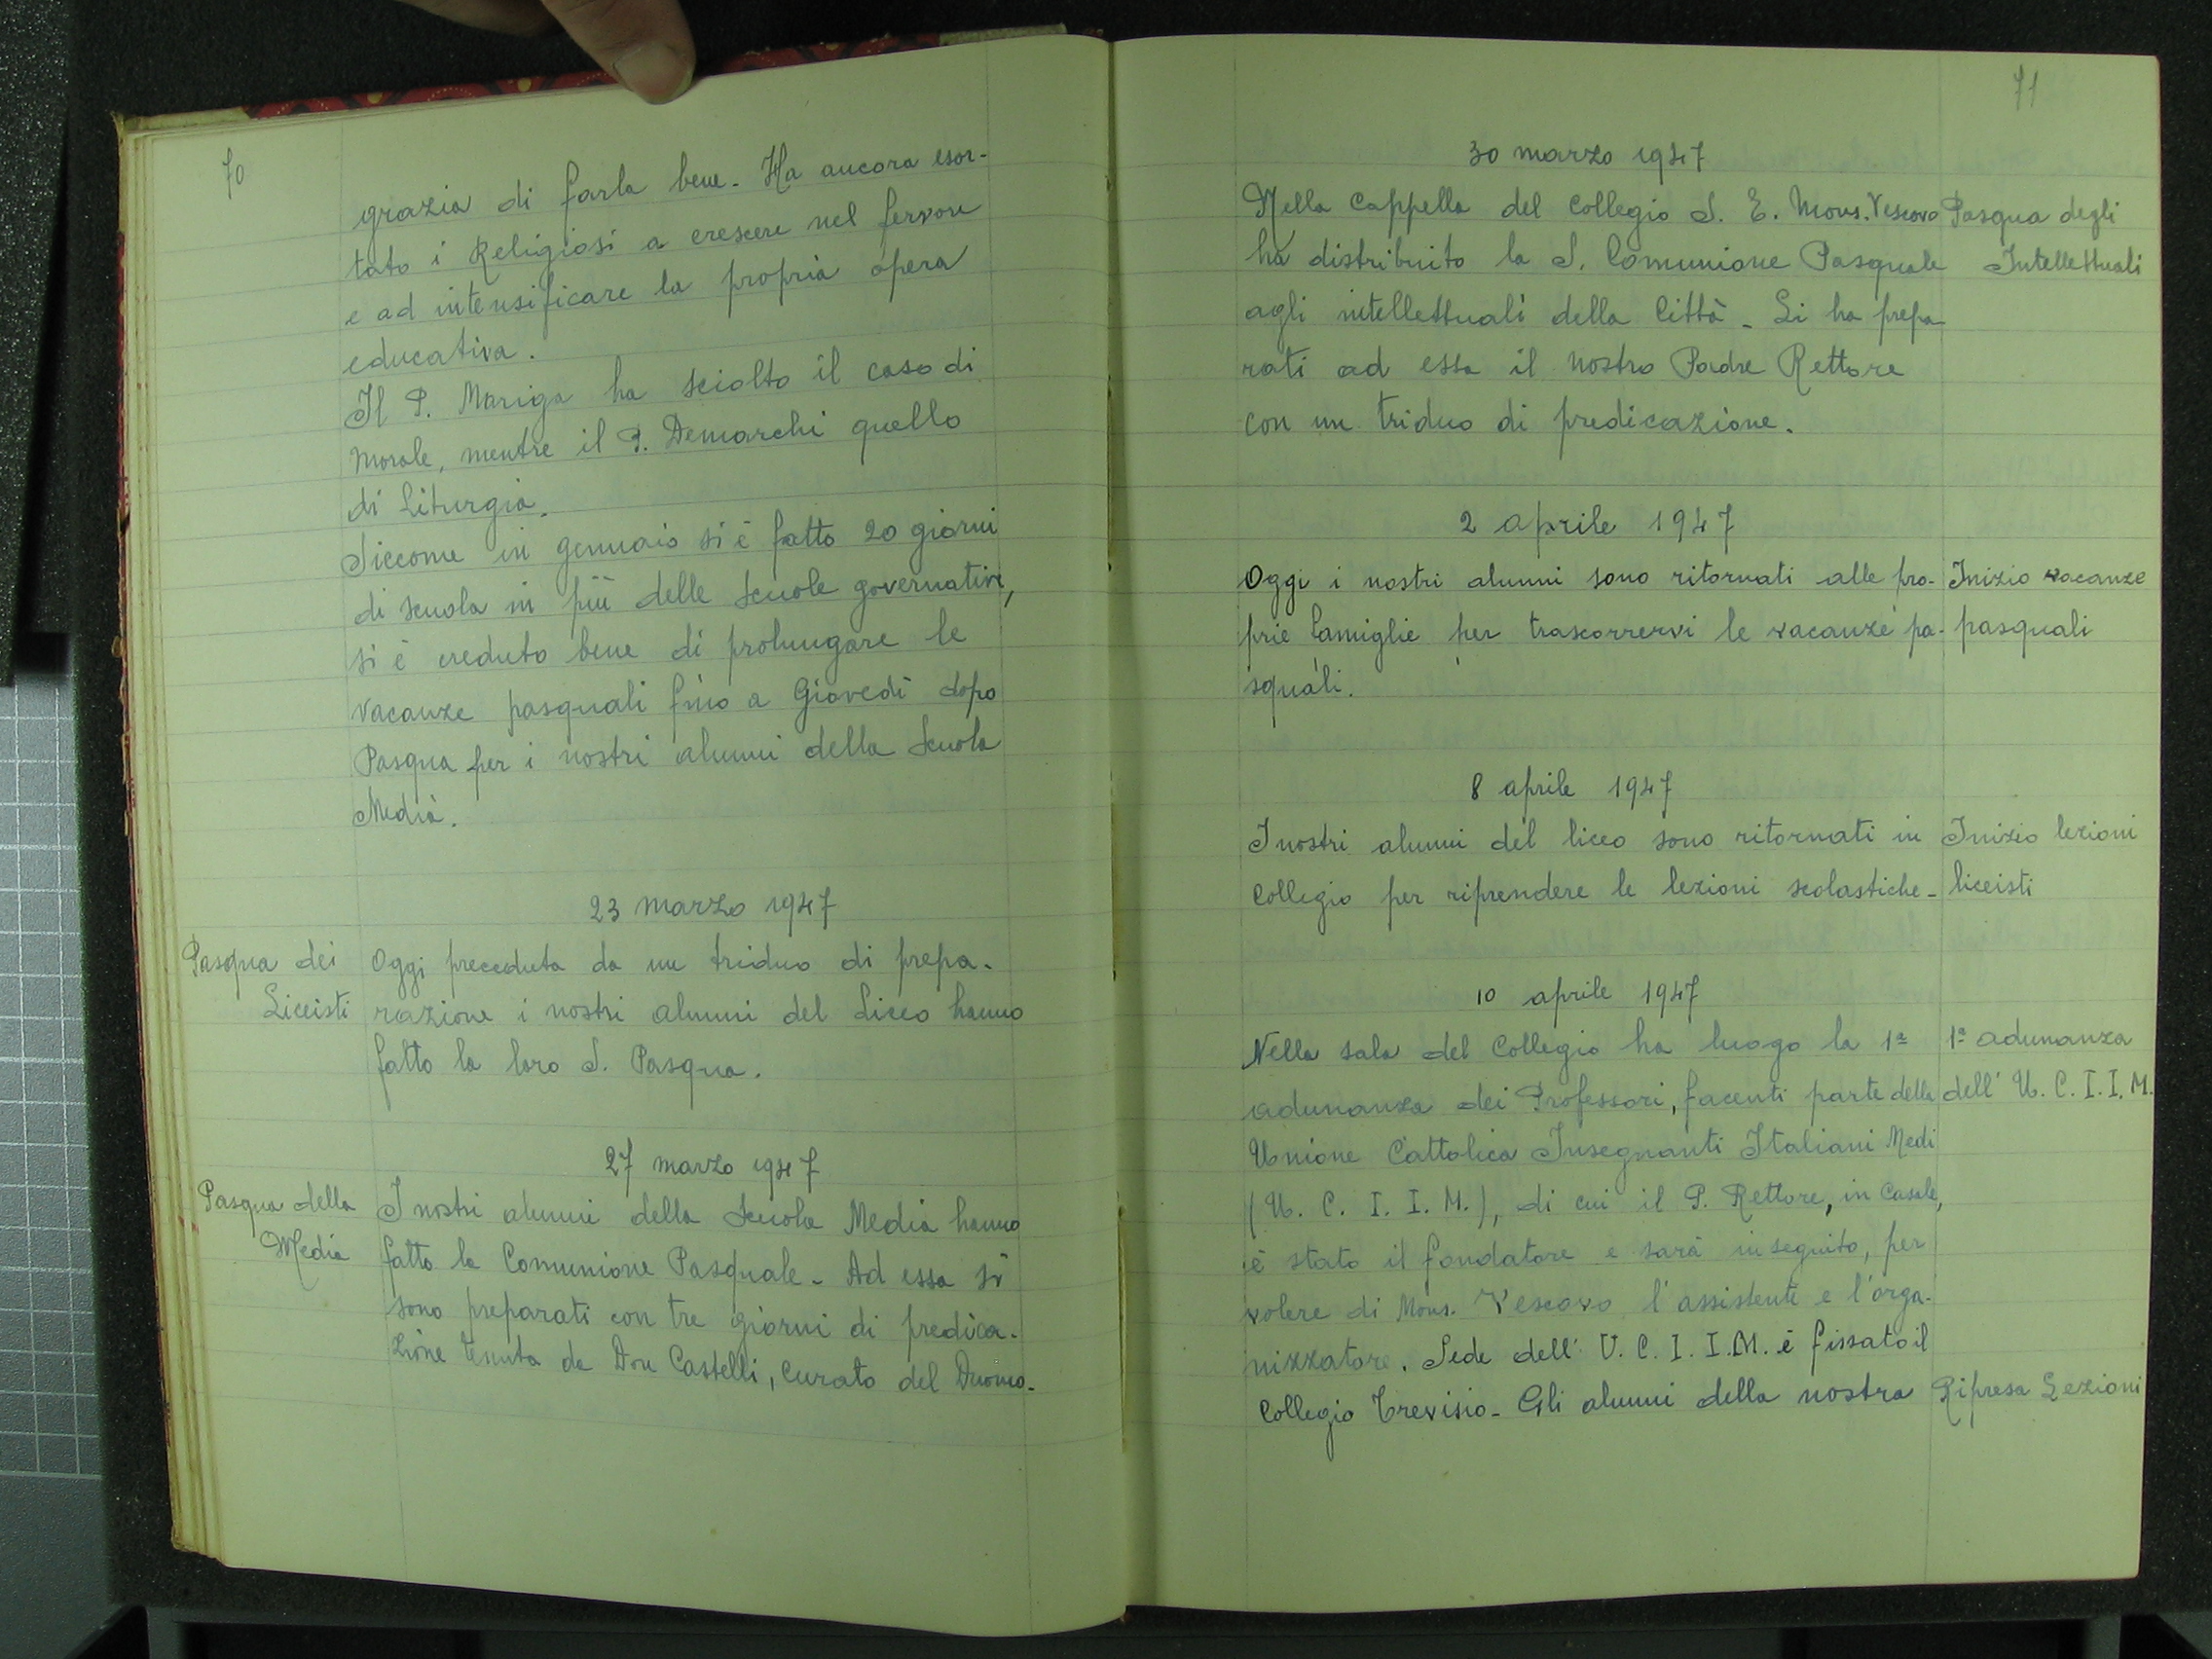 70
grazia di farla bene. Ha ancora esor-
tato i Religiosi a crescere nel fervore
e ad intensificare la propria opera
educativa.
Il P. Mariga ha sciolto il caso di
Morale, mentre il P. Demarchi quello
di Liturgia.
Siccome in gennaio si è fatto 20 giorni
di scuola in più delle scuole governative,
si è creduto bene di prolungare le
vacanze pasquali fino a Giovedì dopo
Pasqua per i nostri alunni della Scuola
Media.
23 marzo 1947
Pasqua dei
Liceisti
Oggi preceduta da un triduo di prepa-
razione i nostri alunni del Liceo hanno
fatto la loro S. Pasqua.
27 marzo 1947
Pasqua della
Media
I nostri alunni della Scuola Media hanno
fatto la Comunione Pasquale. Ad essa si
sono preparati con tre giorni di predica-
zione tenuta da Don Castelli, curato del Duomo.
71
30 marzo 1947
Nella Cappella del Collegio S. E. Mons. Vescovo
ha distribuito la S. Comunione Pasquale
agli intellettuali della Città - Li ha prepa-
rati ad essa il nostro Padre Rettore
con un triduo di predicazione.
Pasqua degli
Intellettuali
2 aprile 1947
Oggi i nostri alunni sono ritornati alle pro-
prie famiglie per trascorrervi le vacanze pa-
squali.
Inizio vacanze
pasquali
8 aprile 1947
I nostri alunni del liceo sono ritornati in
Collegio per riprendere le lezioni scolastiche -
Inizio lezioni
liceisti
10 aprile 1947
Nella sala del Collegio ha luogo la 1ª
adunanza dei Professori, facenti parte della
Unione Cattolica Insegnanti Italiani Medi
(U. C. I. I. M.), di cui il P. Rettore, in Casale,
è stato il fondatore e sarà in seguito, per
volere di Mons. Vescovo l'assistente e l'orga-
nizzatore. Sede dell' U. C. I. I. M. è fissato il
Collegio Trevisio - Gli alunni della nostra
1ª adunanza
dell' U. C. I. I. M.
Ripresa Lezioni